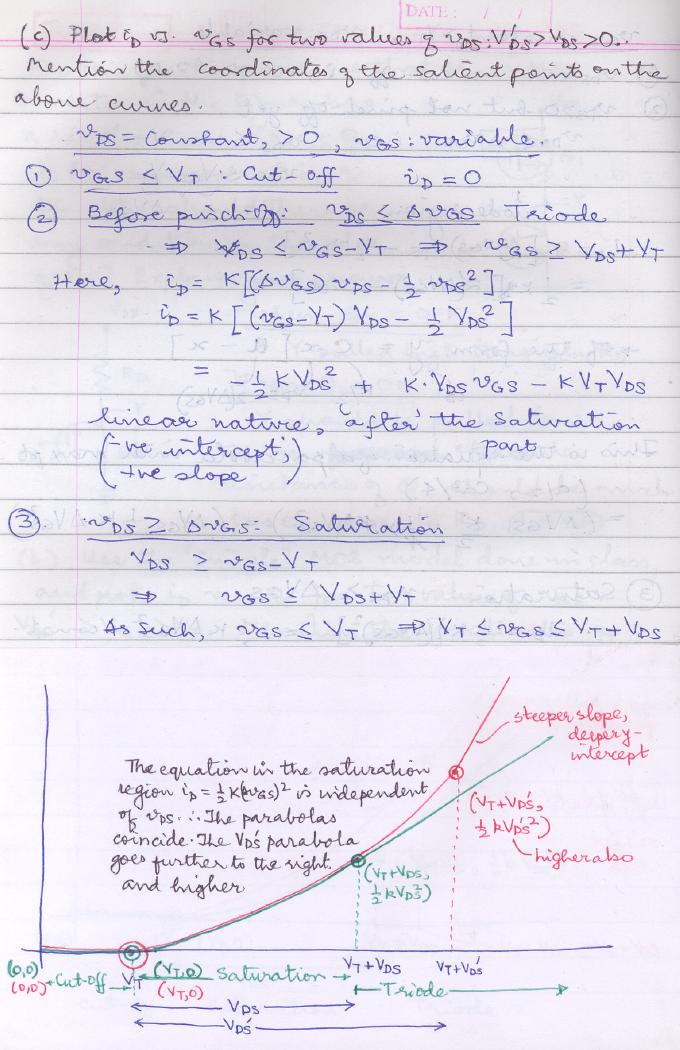 DATE: / /
(c) Plot i_D vs. v_GS for two values of v_DS: V'_DS > V_DS > 0.
Mention the coordinates of the salient points on the
above curves.
v_DS = Constant, > 0, v_GS : variable.
① v_GS ≤ V_T : Cut-off i_D = 0
② Before pinch-off: v_DS ≤ Δv_GS Triode
⇒ V_DS ≤ v_GS - V_T ⇒ v_GS ≥ V_DS + V_T
Here, i_D = K[(Δv_GS) v_DS - 1/2 v_DS²]
i_D = K [(v_GS - V_T) V_DS - 1/2 V_DS²]
= -1/2 K V_DS² + K·V_DS v_GS - K V_T V_DS
linear nature, after the saturation
part
(-ve intercept;
+ve slope)
③ v_DS ≥ Δv_GS: Saturation
V_DS ≥ v_GS - V_T
⇒ v_GS ≤ V_DS + V_T
As such, v_GS ≤ V_T ⇒ V_T ≤ v_GS ≤ V_T + V_DS
steeper slope,
deeper y-
intercept
The equation in the saturation
region i_D = 1/2 K(Δv_GS)² is independent
of v_DS. ∴ The parabolas
coincide. The V_DS' parabola
goes further to the right
and higher
(V_T + V_DS',
1/2 k V_DS'²)
higher also
(V_T + V_DS,
1/2 k V_DS²)
(0,0)
(0,0)
Cut-off
V_T
(V_T,0)
(V_T,0)
Saturation
V_T + V_DS
V_T + V_DS'
Triode
V_DS
V_DS'